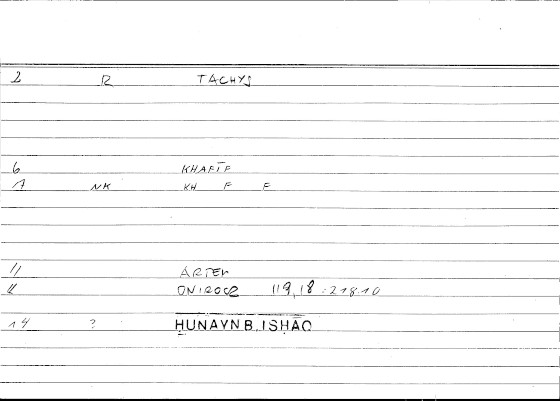 2 R TACHYS
6 KHAFĪF
7 NK KH F F
11 ARTEM
ONIROCR 119,18 :218.10
14 ? ḤUNAYN B. ISḤĀQ